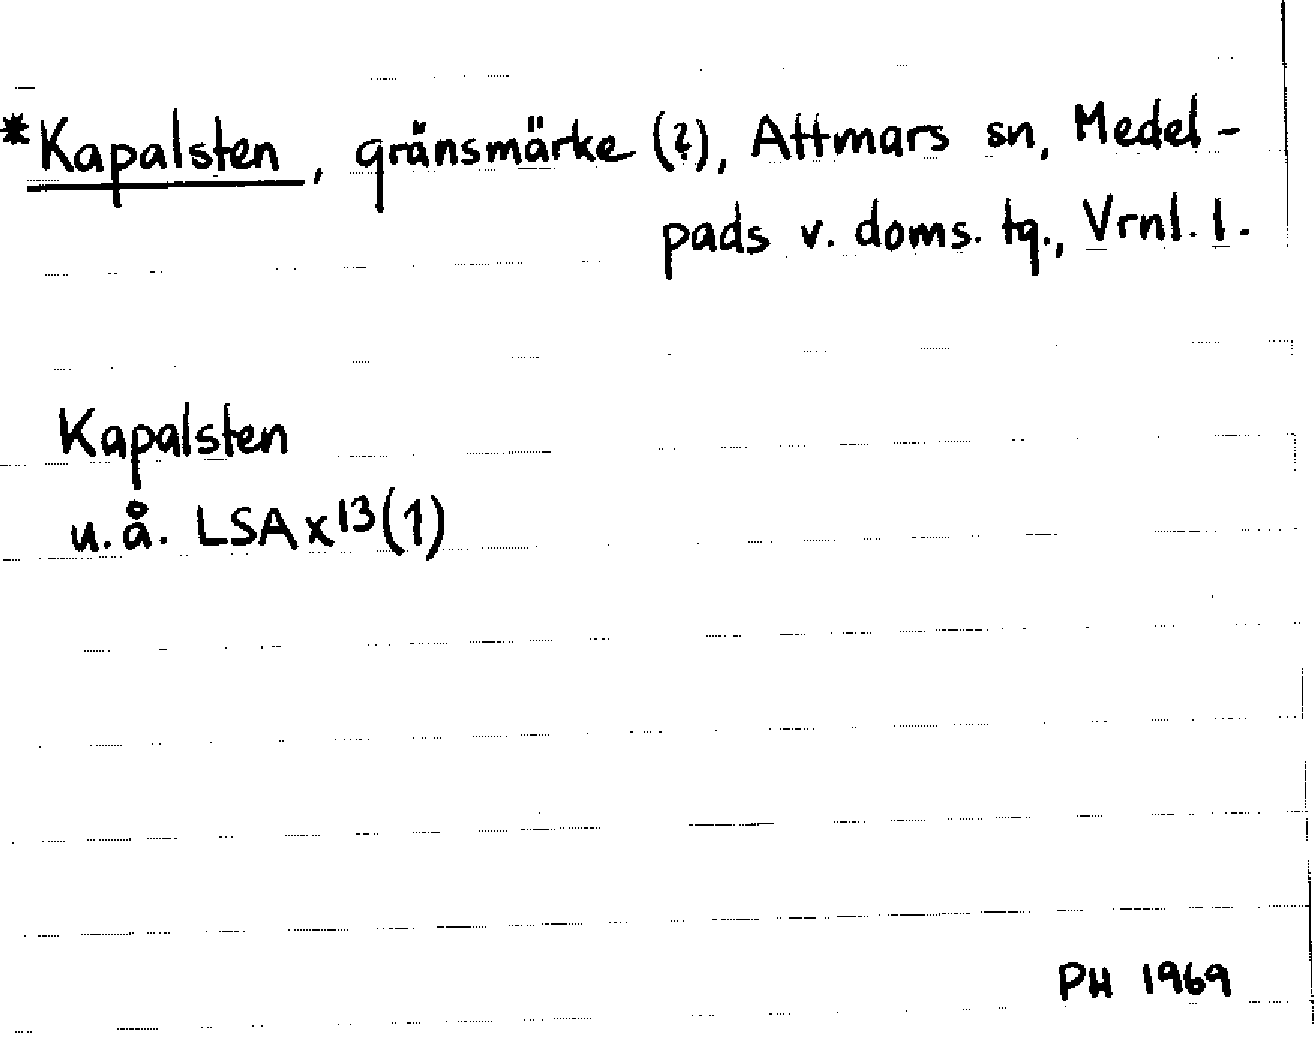 *Kapalsten, gränsmärke (?), Attmars sn, Medel-
pads v. doms. tg., Vrnl. l.
Kapalsten
u.å. LSA x 13(1)
PH 1969